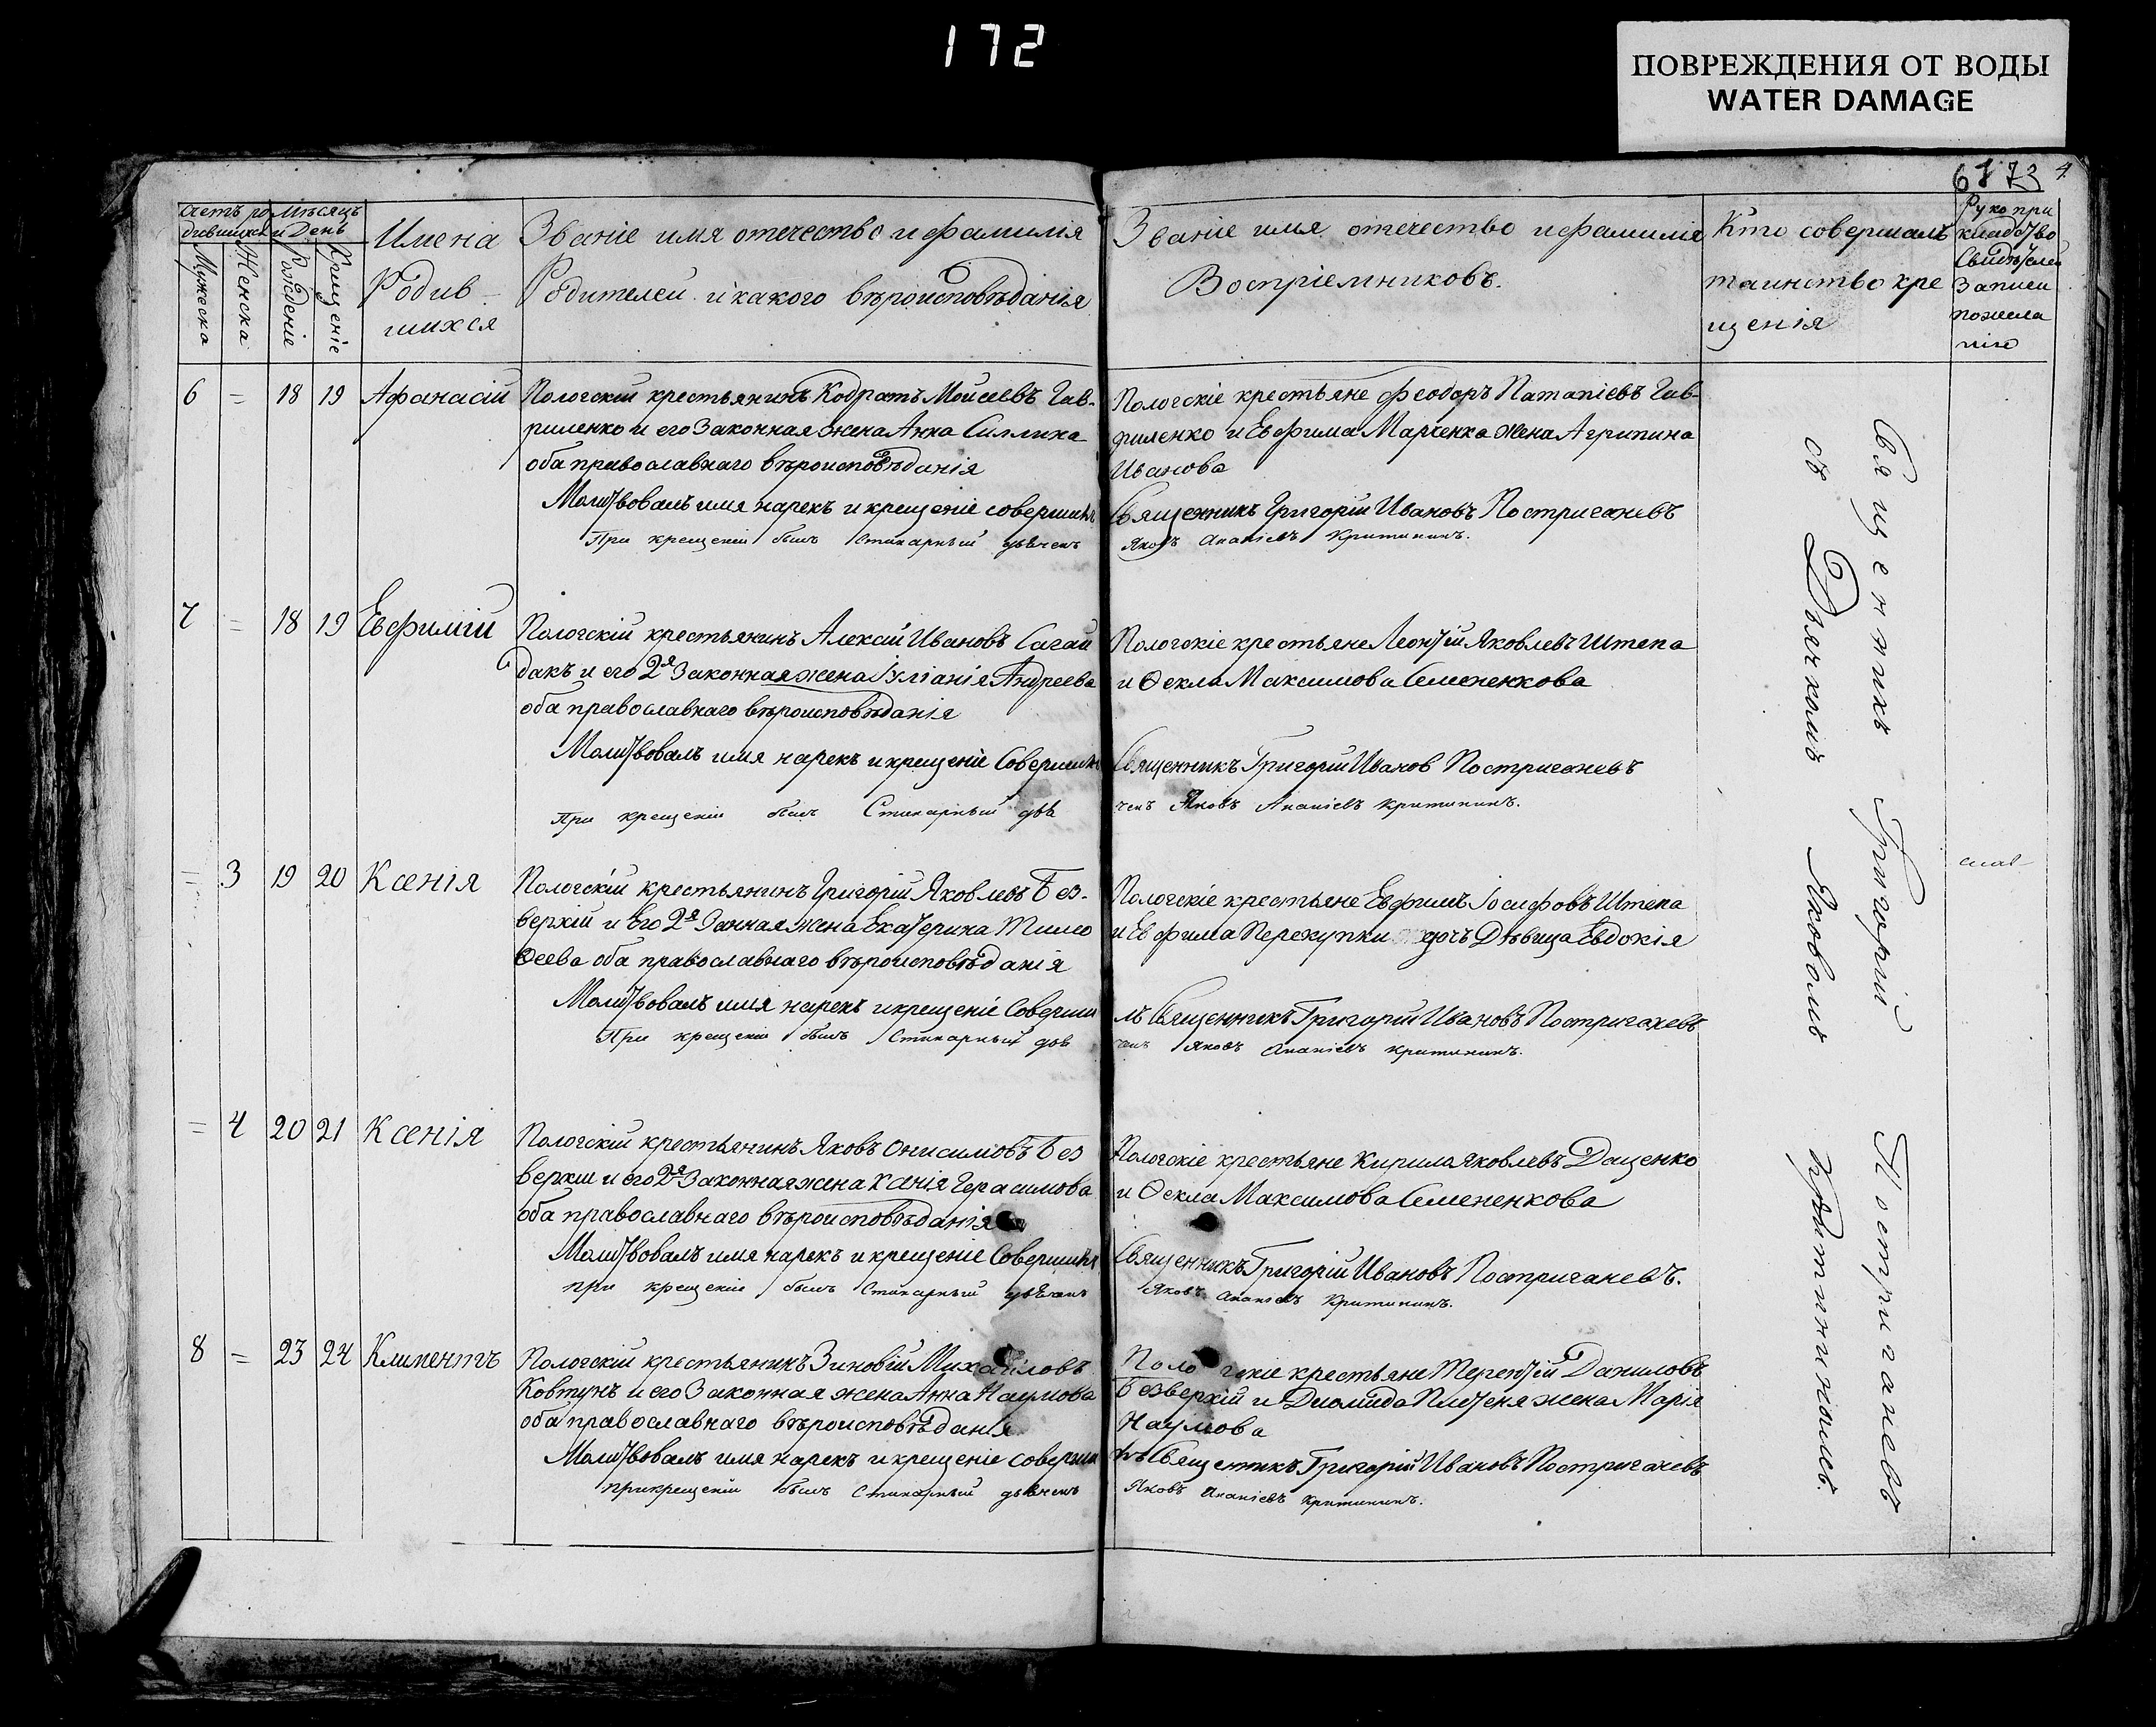 172
ПОВРЕЖДЕНИЯ ОТ ВОДЫ
WATER DAMAGE
4
Счетъ ро
дившихся
Мѣсяцъ
и День
Мужеска
Женска
Рожденіе
Крещеніе
Имена
Родив-
шихся
Званіе имя отечество и фамилія
Родителей и какого вѣроисповѣданія
Званіе имя отечество и фамилія
Воспріемниковъ.
Кто совершалъ
таинство кре
щенія
Руко при
кладство
Свидѣтелей
Записи
по жела
нію
6 = 18 19 Афанасій
Пологскій крестьянинъ Кодратъ Моисеевъ Гав-
риленко и его Законная жена Анна
оба православнаго вѣроисповѣданія
Молитвовалъ имя нарекъ и крещеніе совершилъ
При крещеніи былъ Стихарный дьячекъ
Пологскіе крестьяне Феодоръ Патапіевъ Гав-
риленко и Евфима Марченка жена Агрипина
Иванова
Священникъ Григорій Ивановъ Постригачевъ
Яковъ Ананіевъ Критининъ.
7 = 18 19 Евфимій
Пологскій крестьянинъ Алексій Ивановъ Сагай
дакъ и его 2я Законная жена Іуліанія Андреева
оба православнаго вѣроисповѣданія
Молитвовалъ имя нарекъ и крещеніе Совершилъ
При крещеніи былъ Стихарный дья
Пологскіе крестьяне Леонтій Яковлевъ Штепа
и Ѳекла Максимова Семененкова
Священникъ Григорій Иванов Постригачевъ
чекъ Яковъ Ананіевъ Критининъ.
= 3 19 20 Ксенія
Пологскій крестьянинъ Григорій Яковлевъ Без-
верхій и Его 2я Закнная жена Екатерина Тимо
ѳеева оба православнаго вѣроисповѣданія
Молитвовалъ имя нарекъ и крещеніе Соверши
При крещеніи былъ Стихарный дья
Пологскіе крестьяне Евфимъ Іосифовъ Штепа
и Евфима Перекупки дочь Дѣвица Евдокія
лъ Священникъ Григорій Ивановъ Постригачевъ
чекъ Яковъ Ананіевъ Критининъ.
= 4 20 21 Ксенія
Пологскій крестьянинъ Яковъ Онисимовъ Без
верхій и его 2я Законная жена Ксенія Герасимова
оба православнаго вѣроисповѣданія
Молитвовалъ имя нарекъ и крещеніе Совершилъ
при крещеніи былъ Стихарный дьячекъ
Пологскіе крестьяне Кирила Яковлевъ Даценко
и Ѳекла Максимова Семененкова
Священникъ Григорій Ивановъ Постригачевъ.
Яковъ Ананіевъ Критининъ.
8 = 23 24 Климентъ
Пологскій крестьянинъ Зиновій Михайловъ
Ковтунъ и его Законная жена Анна Наумова
оба православнаго вѣроисповѣданія
Молитвовалъ имя нарекъ и крещеніе соверши
при крещеніи былъ Стихарный дьячекъ
Пологскіе крестьяне Терентій Даниловъ
Безверхій и Диомида Плетеня жена Марія
Наумова
лъ Священникъ Григорій Ивановъ Постригачевъ
Яковъ Ананіевъ Критининъ.
Священникъ Григорій Постригачевъ
съ Дьячкомъ Яковомъ Критининымъ.